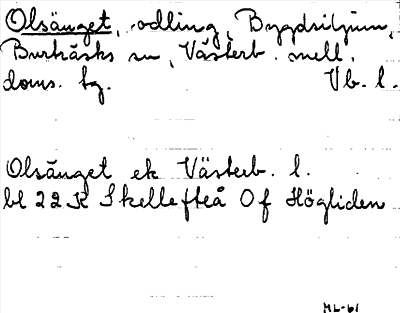 Olsänget, odling, Bygdsiljum,
Burträsks sn, Västerb. mell.
doms. tg. Vb. l.
Olsänget ek Västerb. l.
bl 22 K Skellefteå 0 f Högliden
ML-61